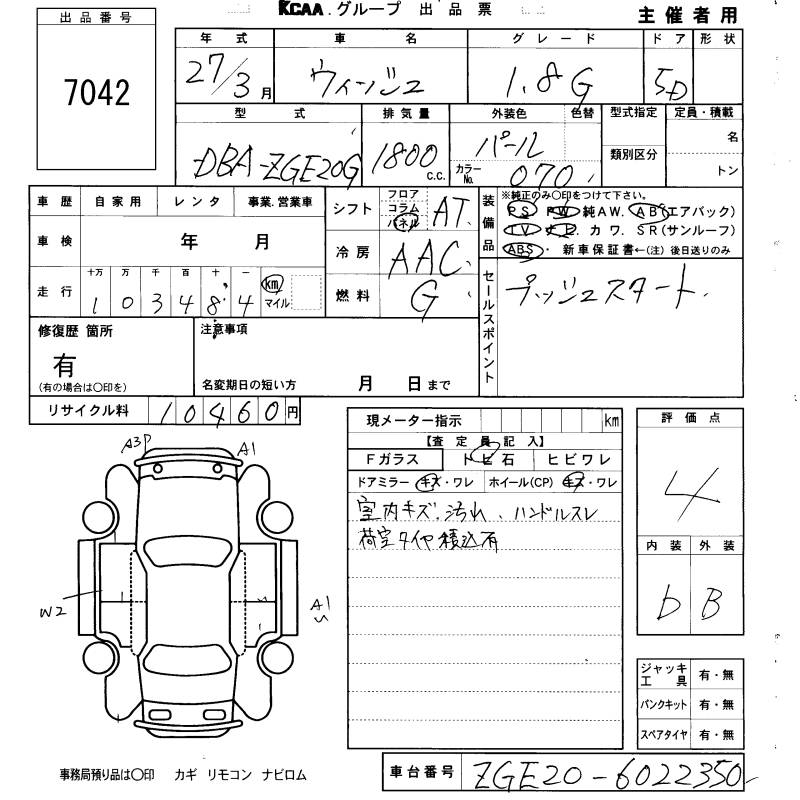 KCAA.グループ 出品票
主催者用
出品番号
7042
年式 車名 グレード ドア 形状
27/3月 ウィッシュ 1.8G 5D
型式 排気量 外装色 色替 型式指定 定員・積載
DBA-ZGE20G 1800 c.c. パール カラーNo. 070 類別区分 名
トン
車歴 自家用 レンタ 事業.営業車
車検 年 月
走行 十万 万 千 百 十 一
1 0 3 4 8 4 km マイル
シフト フロア コラム パネル AT
冷房 AAC
燃料 G
装備品
※純正のみ〇印をつけて下さい。
PS PW 純AW. AB(エアバック)
TV ナビ. カワ. SR(サンルーフ)
ABS・ 新車保証書←(注) 後日送りのみ
セールスポイント
プッシュスタート.
修復歴 箇所
有
(有の場合は〇印を)
注意事項
名変期日の短い方 月 日まで
リサイクル料 10460円
現メーター指示 km
【査定員記入】
Fガラス トビ石 ヒビワレ
ドアミラー キズ・ワレ ホイール(CP) キズ・ワレ
室内キズ、汚れ、ハンドルスレ
荷室タイヤ積込有
評価点
4
内装 外装
D B
A3P A1
W2 A1
ジャッキ工具 有・無
パンクキット 有・無
スペアタイヤ 有・無
事務局預り品は〇印 カギ リモコン ナビロム
車台番号 ZGE20-6022350